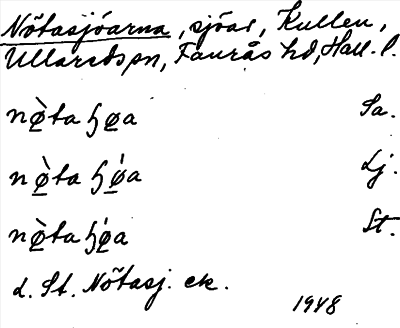 Nõtasjóarna, sjóar, Kullen,
Ullareds sn, Faurås hd, Hall. l.
nø̀ta ɧøa Sa.
nø̀ta ɧǿa Lj.
nø̀ta ɧǿa St.
d. St. Nõtasj. ek.
1948